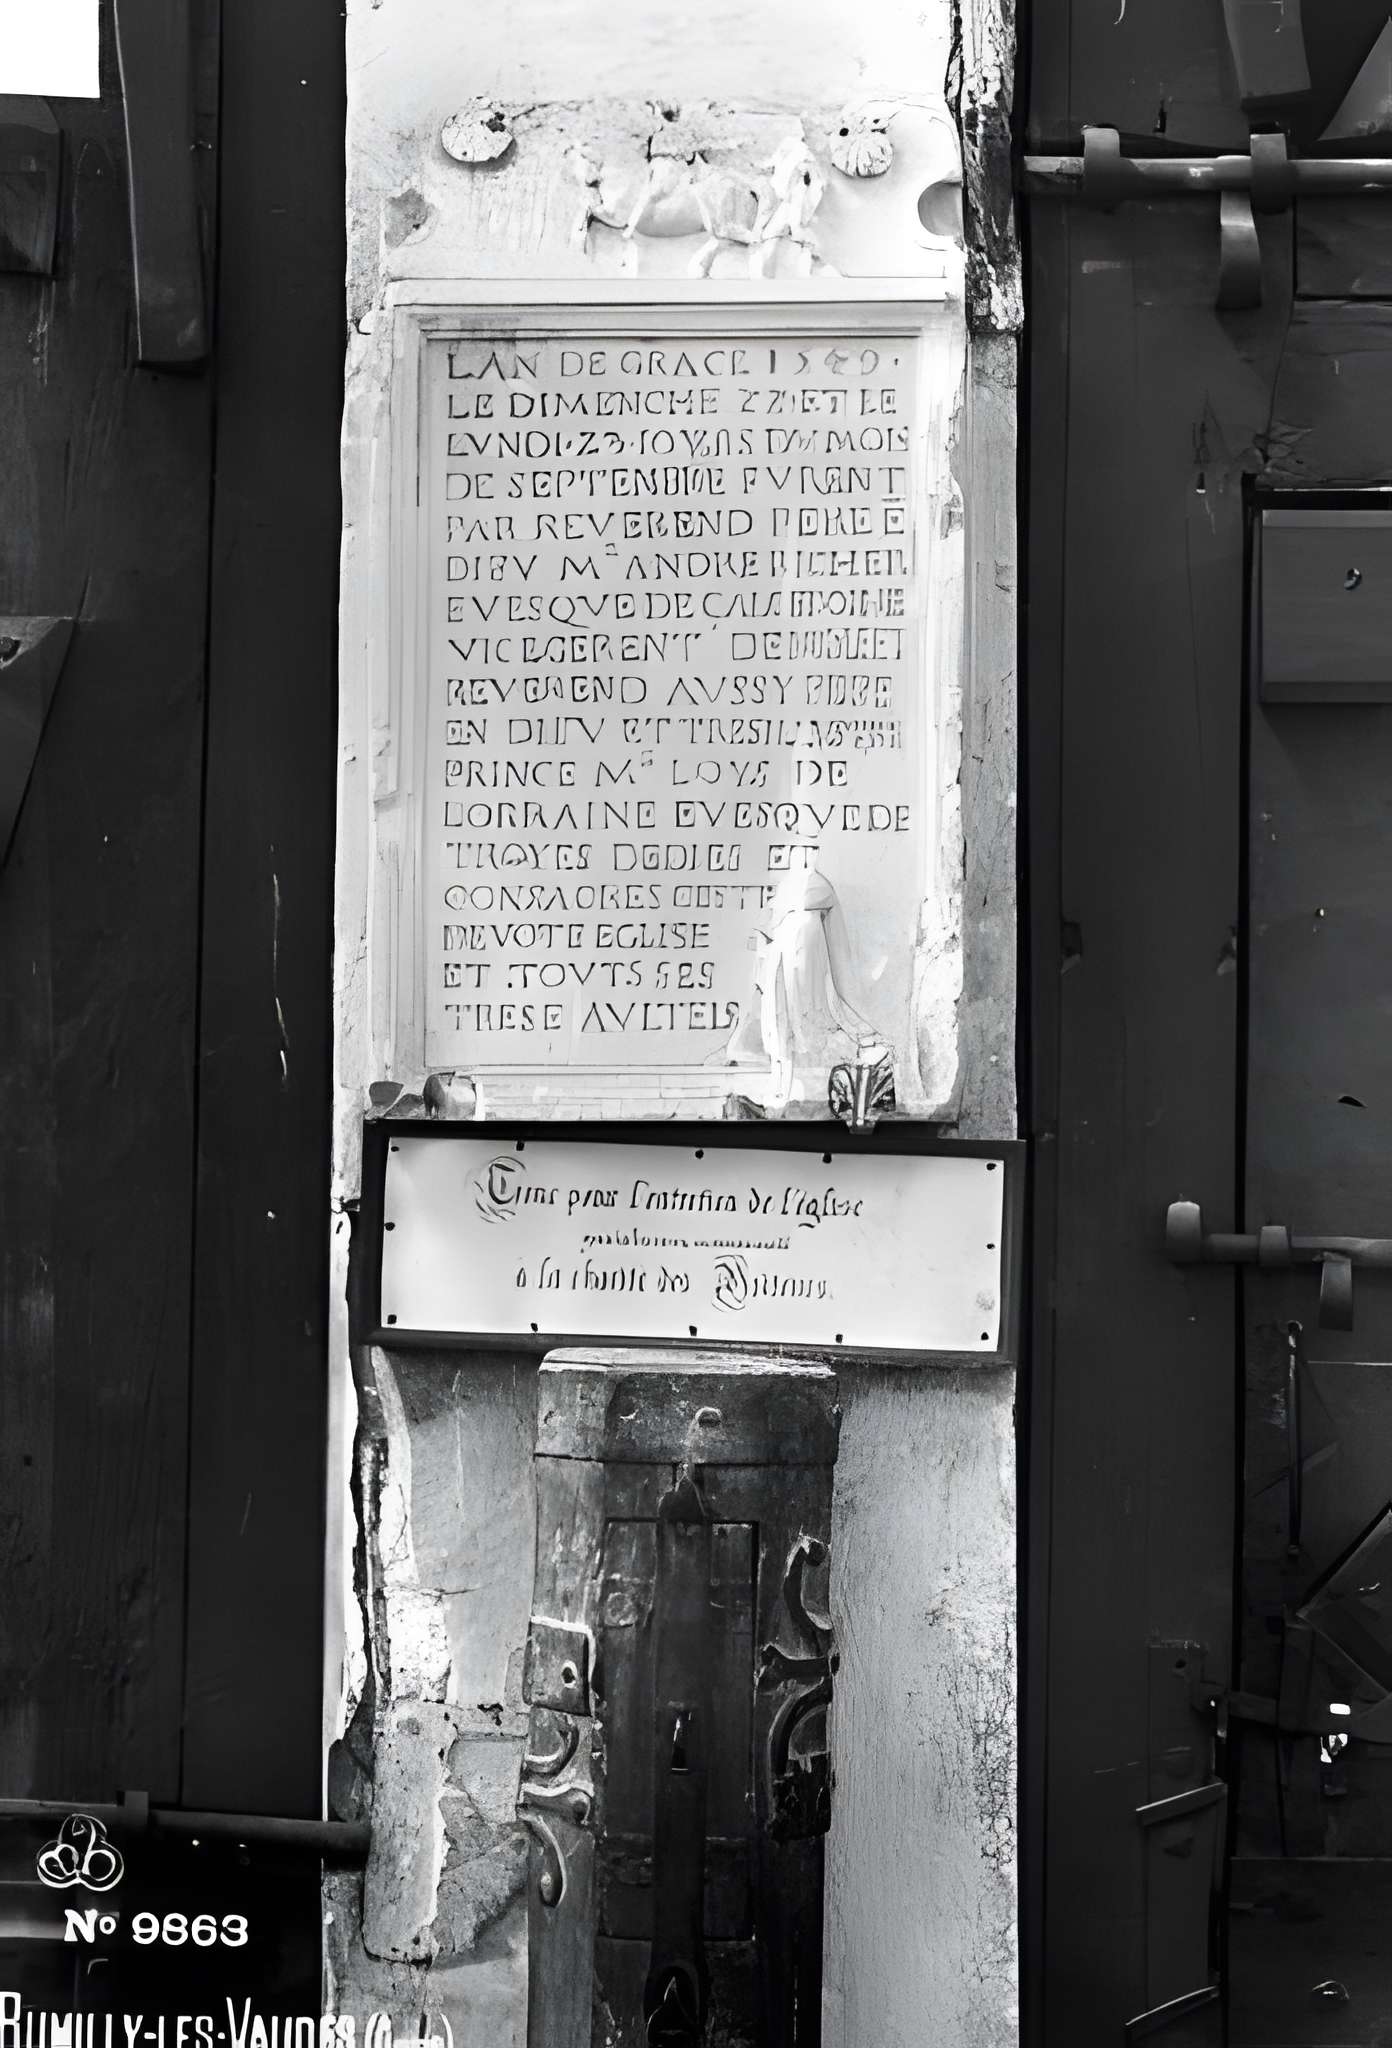 LAN DE GRACE 1549.
LE DIMENCHE 22 ET LE
LVNDI·23·IOVRS DV MOIS
DE SEPTEMBRE FVRENT
PAR REVEREND PERE Ē
DIEV Mᴱ ANDRE RICHER
EVESQVE DE
VICEGERENT DE
REVEREND AVSSY PERE
EN DIEV ET TRESILLVSTRE
PRINCE Mᴱ LOYS DE
LORRAINE EVESQVE DE
TROYES DEDIES ET
CONSACRES CESTE
DEVOTE EGLISE
ET TOVTS SES
TRESE AVLTELS
de l'Eglise
à la
No 9863
RUMILLY-LES-VAUDES (